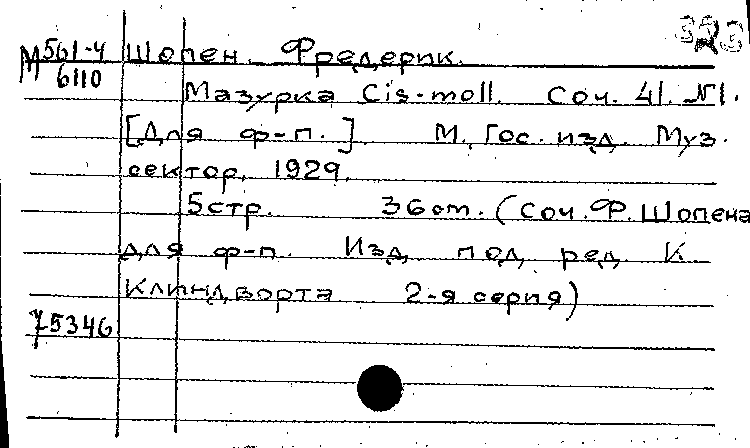 М 561-4
6110
Шопен Фредерик.
Мазурка Cis-moll. Соч. 41. №1.
[Для ф-п.] М., Гос. изд. Муз.
сектор, 1929.
5 стр. 36 от. (Соч. Ф. Шопена
для ф-п. Изд. под ред. К.
Клиндворта 2-я серия)
75346